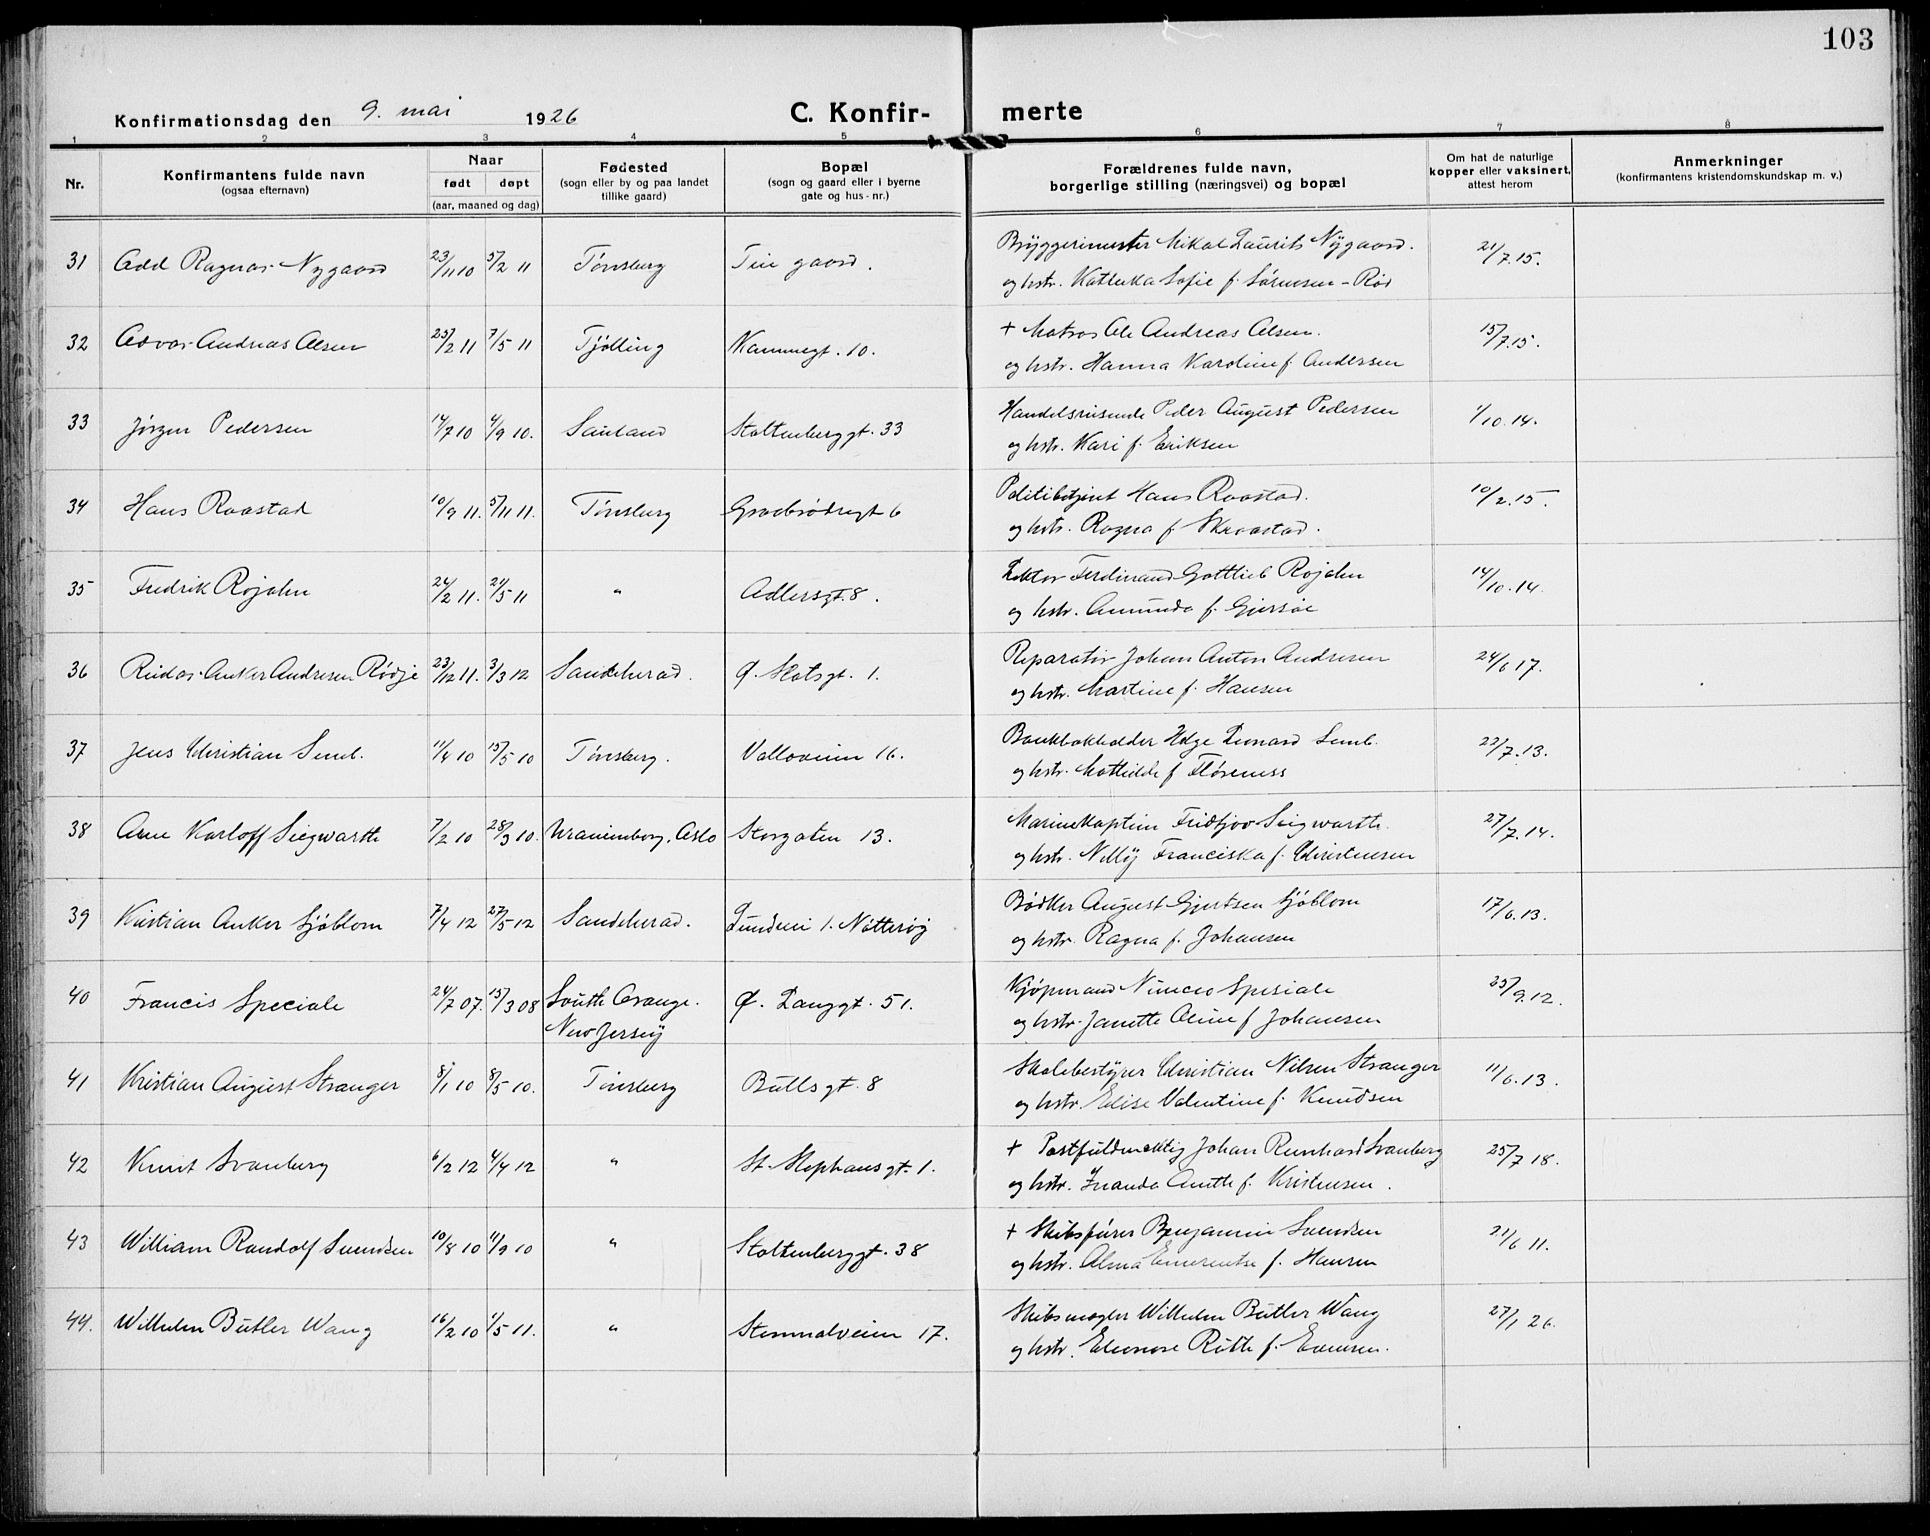 103
Konfirmationsdag den 9. mai 1926 C. Konfir- merte
1 2 3 4 5 6 7 8
Nr. Konfirmantens fulde navn (ogsaa efternavn) Naar født døpt (aar, maaned og dag) Fødested (sogn eller by og paa landet tillike gaard) Bopæl (sogn og gaard eller i byerne gate og hus-nr.) Forældrenes fulde navn, borgerlige stilling (næringsvei) og bopæl Om hat de naturlige kopper eller vaksinert, attest herom Anmerkninger (konfirmantens kristendomskundskap m. v.)
31 Odd Ragnar Nygaard 23/11 10 5/2 11 Tønsberg Teie gaard. Bryggerimester Mikal Laurits Nygaard. 21/7.15.
og hstr. Kathinka Sofie f. Sørensen-Rød
32 Edvar Andreas Olsen 25/2 11 7/5 11 Tjølling Kammegt. 10. + Matros Ole Andreas Olsen. 15/7.15.
og hstr. Hanna Karoline f. Andersen
33 Jørgen Pedersen 14/7 10 4/9 10. Sauland Stoltenberggt. 33 Handelsreisende Peder August Pedersen 1/10.14.
og hstr. Kari f. Eriksen
34 Hans Raastad 10/9 11. 5/11 11. Tønsberg Graabrødregt 6 Politibetjent Hans Raastad. 10/2.15.
og hstr. Ragna f. Skraastad.
35 Fredrik Rojahn 24/2 11. 21/5 11 " Adlersgt. 8. Lektor Ferdinand Gottlieb Rojahn 14/10.14.
og hstr. Amunda f. Gjersøe
36 Reidar Anker Andresen Rødje 23/12 11. 3/3 12 Sandeherad. Ø. Slotsgt. 1. Reparatør Johan Anton Andresen 24/6 17.
og hstr. Martine f. Hansen
37 Jens Christian Semb. 11/4 10 15/5 10 Tønsberg. Valloveien 16. Bankbokholder Helge Leonard Semb. 22/7.13.
og hstr. Mathilde f. Florenuss
38 Arne Karloff Siegwarth 7/2 10 28/3 10. Uranienborg, Oslo Storgaten 13. Marinekaptein Fridtjov Seigwarth. 27/7.14.
og hstr. Nelly Franciska f. Christensen
39 Kristian Anker Sjøblom 7/4 12 27/5 12 Sandeherad. Lundvei 1. Nøtterøy Bødker August Gjertsen Sjøblom 17/6.13.
og hstr. Ragna f. Johansen
40 Francis Speciale 24/7 07. 15/3 08 South Orange. New Jersey Ø. Langgt. 51. Kjøpmand Nunceo Spesiale 25/9.12.
og hstr. Janette Oline f. Johansen
41 Kristian August Stranger 8/1 10 8/5 10. Tønsberg Bullsgt. 8 Skolebestyrer Christian Nilsen Stranger 11/6.13.
og hstr. Elise Valentine f. Knudsen
42 Knut Svanberg 6/2 12 4/4 12 " St. Stephansgt. 1. + Postfuldmektig Johan Reinhard Svanberg 25/7 18.
og hstr. Inanda Anette f. Kristensen.
43 William Randolf Svendsen 10/8 10 11/9 10 " Stoltenberggt. 38 + Skibsfører Benjamin Svendsen 21/6 11.
og hstr. Alma Emerentse f. Hansen
44. Wilhelm Butler Wang 16/2 10 1/5 11. " Stenmalveien 17. Skibsmegler Wilhelm Butler Wang 27/1 26.
og hstr. Elenore Ruth f. Evensen.